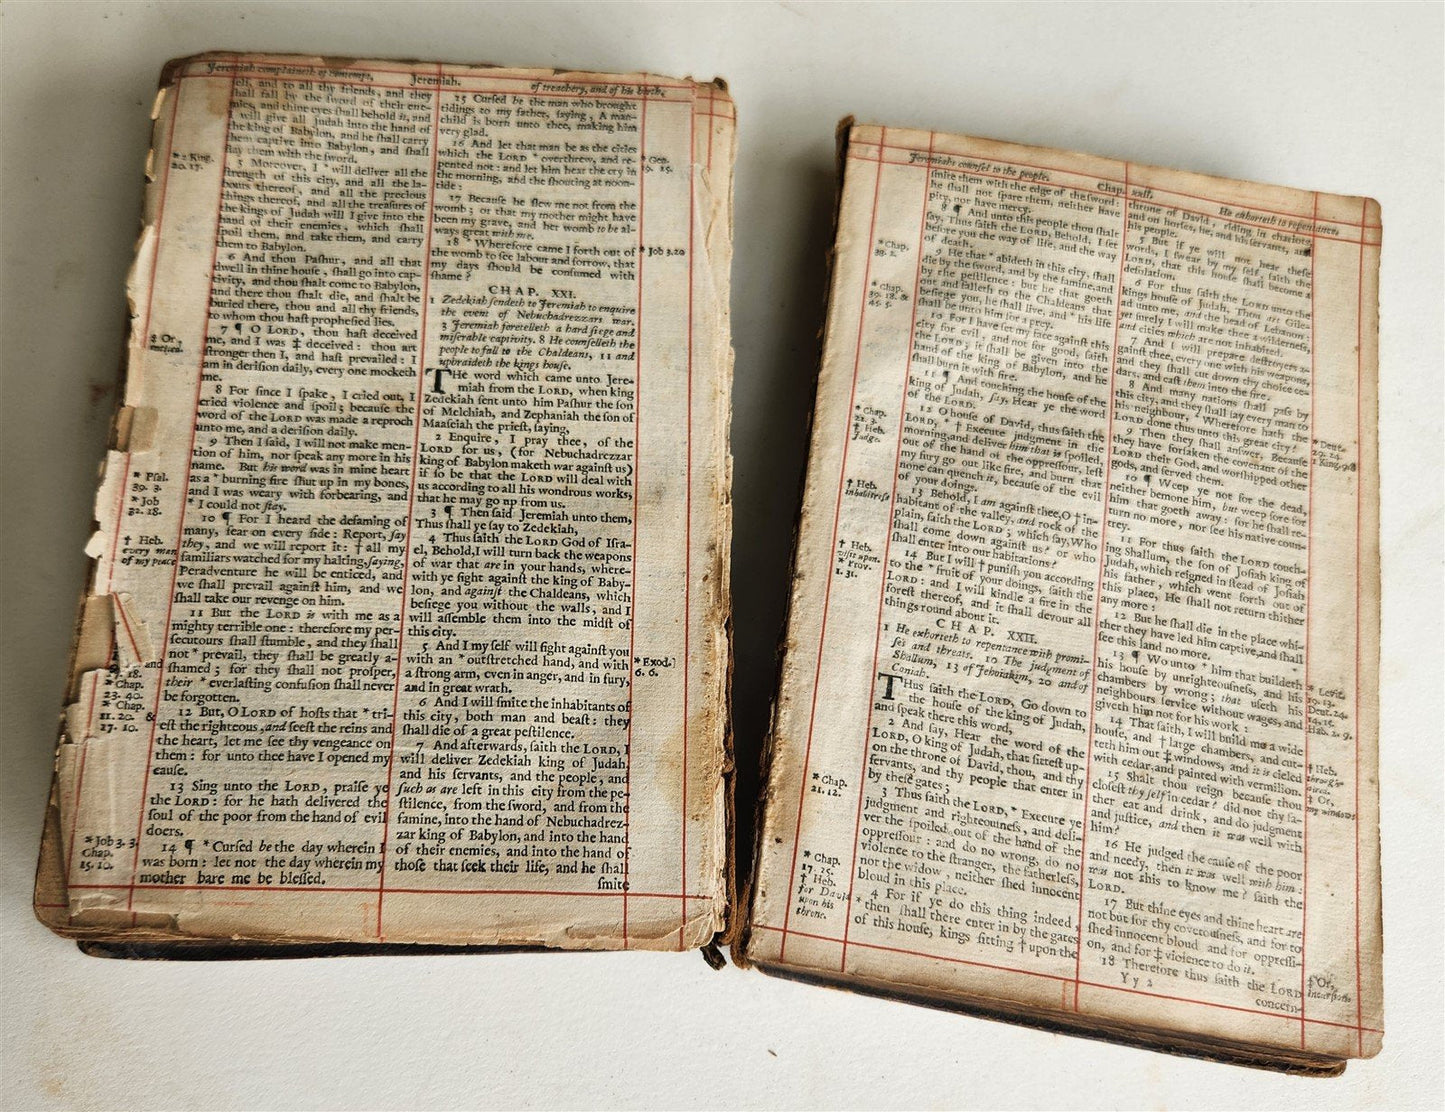 Jeremiah complaineth of contempt,
Jeremiah.
of treachery, and of his birth.
ſelf, and to all thy friends, and they
ſhall fall by the ſword of their ene-
mies, and thine eyes ſhall behold it, and
I will give all Judah into the hand of
the king of Babylon, and he ſhall carry
them captive into Babylon, and ſhall
ſlay them with the ſword.
5 Moreover, I * will deliver all the
ſtrength of this city, and all the la-
bours thereof, and all the precious
things thereof, and all the treaſures of
the kings of Judah will I give into the
hand of their enemies, which ſhall
ſpoil them, and take them, and carry
them to Babylon.
6 And thou Paſhur, and all that
dwell in thine houſe, ſhall go into cap-
tivity, and thou ſhalt come to Babylon,
and there thou ſhalt die, and ſhalt be
buried there, thou and all thy friends,
to whom thou haſt propheſied lies.
7 ¶ O LORD, thou haſt deceived
me, and I was ‡ deceived: thou art
ſtronger then I, and haſt prevailed: I
am in deriſion daily, every one mocketh
me.
8 For ſince I ſpake, I cried out, I
cried violence and ſpoil; becauſe the
word of the LORD was made a reproch
unto me, and a deriſion daily.
9 Then I ſaid, I will not make men-
tion of him, nor ſpeak any more in his
name. But his word was in mine heart
as a * burning fire ſhut up in my bones,
and I was weary with forbearing, and
* I could not ſtay.
10 ¶ For I heard the defaming of
many, fear on every ſide: Report, ſay
they, and we will report it: † all my
familiars watched for my halting, ſaying,
Peradventure he will be enticed, and
we ſhall prevail againſt him, and we
ſhall take our revenge on him.
11 But the LORD is with me as a
mighty terrible one: therefore my per-
ſecutours ſhall ſtumble, and they ſhall
not * prevail, they ſhall be greatly a-
ſhamed; for they ſhall not proſper,
their * everlaſting confuſion ſhall never
be forgotten.
12 But, O LORD of hoſts that * tri-
eſt the righteous, and ſeeſt the reins and
the heart, let me ſee thy vengeance on
them: for unto thee have I opened my
cauſe.
13 Sing unto the LORD, praiſe ye
the LORD: for he hath delivered the
ſoul of the poor from the hand of evil
doers.
14 ¶ * Curſed be the day wherein I
was born: let not the day wherein my
mother bare me be bleſſed.
* 2 King.
20. 17.
‡ Or,
* Pſal.
39. 3.
* Job
32. 18.
† Heb.
every man
of my peace
and
* Chap.
23. 40.
* Chap.
11. 20. &
17. 10.
* Job 3. 3.
Chap.
15. 10.
15 Curſed be the man who brought
tidings to my father, ſaying, A man-
child is born unto thee, making him
very glad.
16 And let that man be as the cities
which the LORD * overthrew, and re-
pented not: and let him hear the cry in
the morning, and the ſhouting at noon-
tide:
17 Becauſe he ſlew me not from the
womb; or that my mother might have
been my grave, and her womb to be al-
ways great with me.
18 * Wherefore came I forth out of
the womb to ſee labour and ſorrow, that
my days ſhould be conſumed with
ſhame?
CHAP. XXI.
1 Zedekiah ſendeth to Jeremiah to enquire
the event of Nebuchadrezzars war.
3 Jeremiah foretelleth a hard ſiege and
miſerable captivity. 8 He counſelleth the
people to fall to the Chaldeans, 11 and
upbraideth the kings houſe.
THe word which came unto Jere-
miah from the LORD, when king
Zedekiah ſent unto him Paſhur the ſon
of Melchiah, and Zephaniah the ſon of
Maaſeiah the prieſt, ſaying,
2 Enquire, I pray thee, of the
LORD for us, (for Nebuchadrezzar
king of Babylon maketh war againſt us)
if ſo be that the LORD will deal with
us according to all his wondrous works,
that he may go up from us.
3 ¶ Then ſaid Jeremiah unto them,
Thus ſhall ye ſay to Zedekiah,
4 Thus ſaith the LORD God of Iſra-
el, Behold, I will turn back the weapons
of war that are in your hands, where-
with ye fight againſt the king of Baby-
lon, and againſt the Chaldeans, which
beſiege you without the walls, and I
will aſſemble them into the midſt of
this city.
5 And I my ſelf will fight againſt you
with an * outſtretched hand, and with
a ſtrong arm, even in anger, and in fury,
and in great wrath.
6 And I will ſmite the inhabitants of
this city, both man and beaſt: they
ſhall die of a great peſtilence.
7 And afterwards, ſaith the LORD, I
will deliver Zedekiah king of Judah,
and his ſervants, and the people, and
ſuch as are left in this city from the pe-
ſtilence, from the ſword, and from the
famine, into the hand of Nebuchadrez-
zar king of Babylon, and into the hand
of their enemies, and into the hand of
thoſe that ſeek their life, and he ſhall
ſmite
* Gen.
19. 25.
* Job 3.20
* Exod.
6. 6.
Jeremiahs counſel to the people.
Chap. xxii.
He exhorteth to repentance,
ſmite them with the edge of the ſword:
he ſhall not ſpare them, neither have
pity, nor have mercy.
8 ¶ And unto this people thou ſhalt
ſay, Thus ſaith the LORD, Behold, I ſet
before you the way of life, and the way
of death.
9 He that * abideth in this city, ſhall
die by the ſword, and by the famine, and
by the peſtilence: but he that goeth
out and falleth to the Chaldeans that
beſiege you, he ſhall live, and * his life
ſhall be unto him for a prey.
10 For I have ſet my face againſt this
city for evil, and not for good, ſaith
the LORD; it ſhall be given into the
hand of the king of Babylon, and he
ſhall burn it with fire.
11 ¶ And touching the houſe of the
king of Judah, ſay, Hear ye the word
of the LORD.
12 O houſe of David, thus ſaith the
LORD, * † Execute judgment in the
morning, and deliver him that is ſpoiled,
out of the hand of the oppreſſour, leſt
my fury go out like fire, and burn that
none can quench it, becauſe of the evil
of your doings.
13 Behold, I am againſt thee, O † in-
habitant of the valley, and rock of the
plain, ſaith the LORD; which ſay, Who
ſhall come down againſt us? or who
ſhall enter into our habitations?
14 But I will † puniſh you according
to the * fruit of your doings, ſaith the
LORD: and I will kindle a fire in the
foreſt thereof, and it ſhall devour all
things round about it.
CHAP. XXII.
1 He exhorteth to repentance with promi-
ſes and threats. 10 The judgment of
Shallum, 13 of Jehoiakim, 20 and of
Coniah.
THus ſaith the LORD, Go down to
the houſe of the king of Judah,
and ſpeak there this word,
2 And ſay, Hear the word of the
LORD, O king of Judah, that ſitteſt up-
on the throne of David, thou, and thy
ſervants, and thy people that enter in
by theſe gates;
3 Thus ſaith the LORD, * Execute ye
judgment and righteouſneſs, and deli-
ver the ſpoiled out of the hand of the
oppreſſour: and do no wrong, do no
violence to the ſtranger, the fatherleſs,
nor the widow, neither ſhed innocent
bloud in this place.
4 For if ye do this thing indeed,
* then ſhall there enter in by the gates
of this houſe, kings ſitting † upon the
* Chap.
38. 2.
* Chap.
39. 18. &
45. 5.
* Chap.
22. 3.
† Heb.
Judge.
† Heb.
inhabitreſs
† Heb.
viſit upon.
* Prov.
1. 31.
* Chap.
21. 12.
* Chap.
17. 25.
† Heb.
for David
upon his
throne.
throne of David, riding in chariots,
and on horſes, he, and his ſervants, and
his people.
5 But if ye will not hear theſe
words, I ſwear by my ſelf, ſaith the
LORD, that this houſe ſhall become a
deſolation.
6 For thus ſaith the LORD unto the
kings houſe of Judah, Thou art Gile-
ad unto me, and the head of Lebanon:
yet ſurely I will make thee a wilderneſs,
and cities which are not inhabited.
7 And I will prepare deſtroyers a-
gainſt thee, every one with his weapons,
and they ſhall cut down thy choice ce-
dars, and caſt them into the fire.
8 And many nations ſhall paſs by
this city, and they ſhall ſay every man to
his neighbour, * Wherefore hath the
LORD done thus unto this great city?
9 Then they ſhall anſwer, Becauſe
they have forſaken the covenant of the
LORD their God, and worſhipped other
gods, and ſerved them.
10 ¶ Weep ye not for the dead,
neither bemone him, but weep ſore for
him that goeth away: for he ſhall re-
turn no more, nor ſee his native coun-
trey.
11 For thus ſaith the LORD touch-
ing Shallum, the ſon of Joſiah king of
Judah, which reigned in ſtead of Joſiah
his father, which went forth out of
this place, He ſhall not return thither
any more:
12 But he ſhall die in the place whi-
ther they have led him captive, and ſhall
ſee this land no more.
13 ¶ Wo unto * him that buildeth
his houſe by unrighteouſneſs, and his
chambers by wrong; that uſeth his
neighbours ſervice without wages, and
giveth him not for his work:
14 That ſaith, I will build me a wide
houſe, and † large chambers, and cut-
teth him out ‡ windows, and it is cieled
with cedar, and painted with vermilion.
15 Shalt thou reign becauſe thou
cloſeſt thy ſelf in cedar? did not thy fa-
ther eat and drink, and do judgment
and juſtice, and then it was well with
him?
16 He judged the cauſe of the poor
and needy, then it was well with him:
was not this to know me? ſaith the
LORD.
17 But thine eyes and thine heart are
not but for thy covetouſneſs, and for to
ſhed innocent bloud and for oppreſſi-
on, and for ‡ violence to do it.
18 Therefore thus ſaith the LORD
Y y 2
concern-
* Deut.
29. 24.
1 King. 9.8
* Levit.
19. 13.
Deut. 24.
14, 15.
Hab. 2. 9.
† Heb.
through-
aired.
‡ Or,
my windows
‡ Or,
incurſion